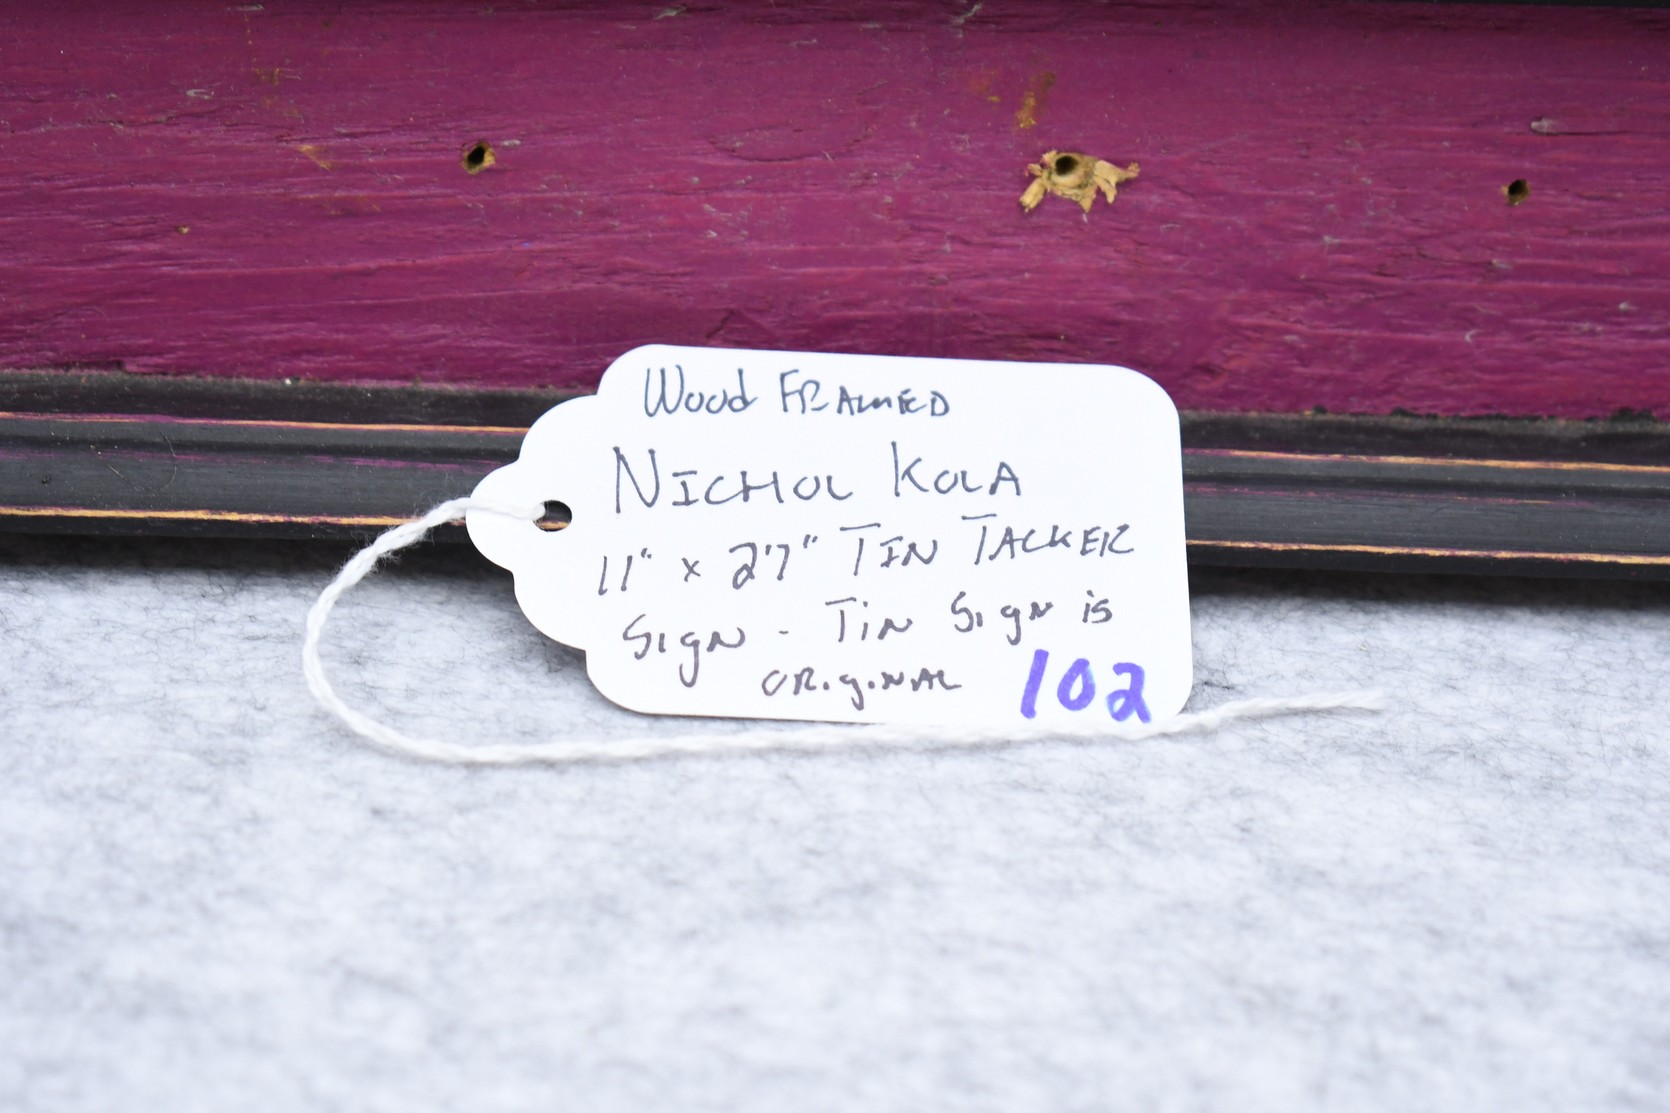 Wood FRAMED
NICHOL KOLA
11" x 27" TIN TACKER
SIgN - TiN SIgN is
ORigiNAL 102